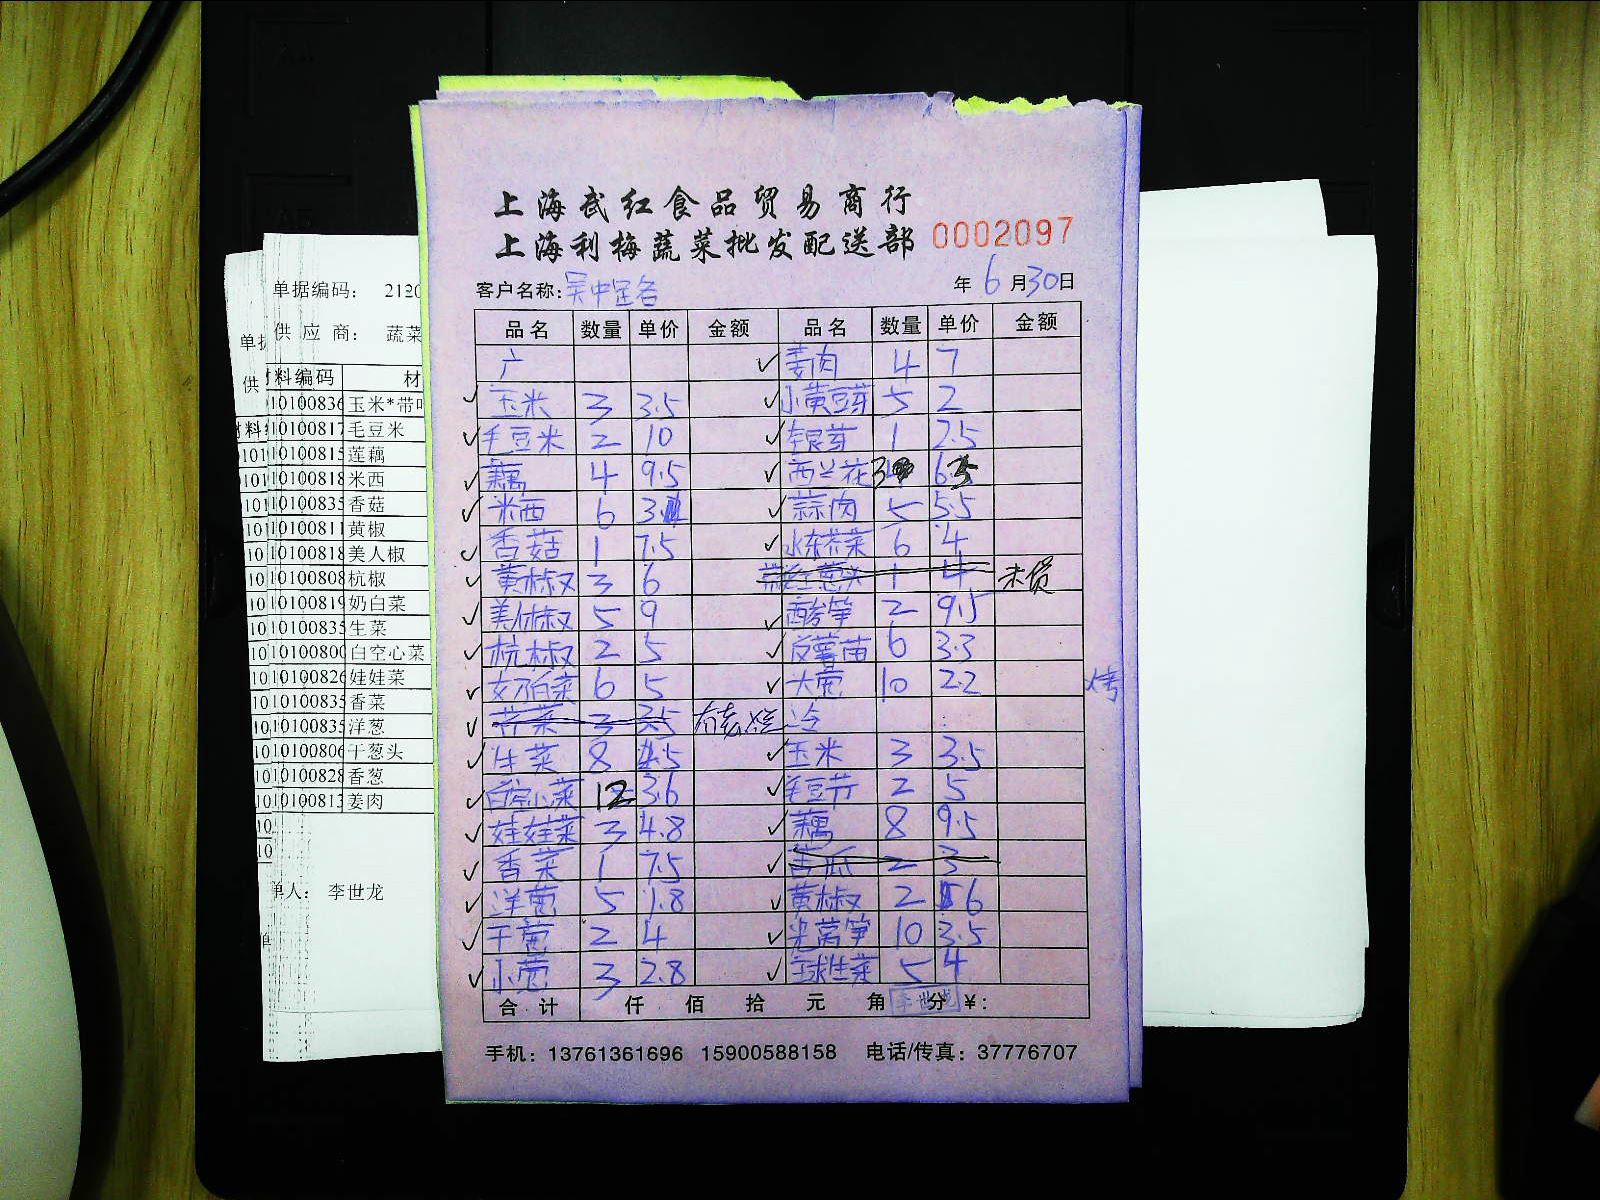 上海武红食品贸易商行
上海利梅蔬菜批发配送部 0002097
客户名称: 吴中 年 6 月 30 日
品名 数量 单价 金额 品名 数量 单价 金额
广 姜肉 4 7
玉米 3 3.5 小黄豆芽 5 2
毛豆米 2 10 银芽 1 2.5
藕 4 9.5 西兰花 3 6.5
米西 6 3 蒜肉 5 5.5
香菇 1 7.5 水东芥菜 6 4
黄椒 3 6 红葱头 1 4 未货
美人椒 5 9 酸笋 2 9.5
杭椒 2 5 番薯苗 6 3.3
奶白菜 6 5 大葱 10 2.2 烤
芥菜 3 3.5 冷
生菜 8 4.5 玉米 3 3.5
白空心菜 12 3.6 毛豆节 2 5
娃娃菜 3 4.8 藕 8 9.5
香菜 1 7.5 苦瓜 2 3
洋葱 5 1.8 黄椒 2 6
干葱 2 4 光莴笋 10 3.5
小葱 3 2.8 球生菜 5 4
合计 仟 佰 拾 元 角 分 ¥:
手机: 13761361696 15900588158 电话/传真: 37776707
单据编码: 2120
供应商: 蔬菜
料编码 材
10100836 玉米*带
10100817 毛豆米
10100815 莲藕
10100818 米西
10100835 香菇
10100811 黄椒
10100818 美人椒
10100808 杭椒
10100819 奶白菜
10100835 生菜
10100800 白空心菜
10100826 娃娃菜
10100835 香菜
10100835 洋葱
10100806 干葱头
10100828 香葱
10100813 姜肉
单人: 李世龙